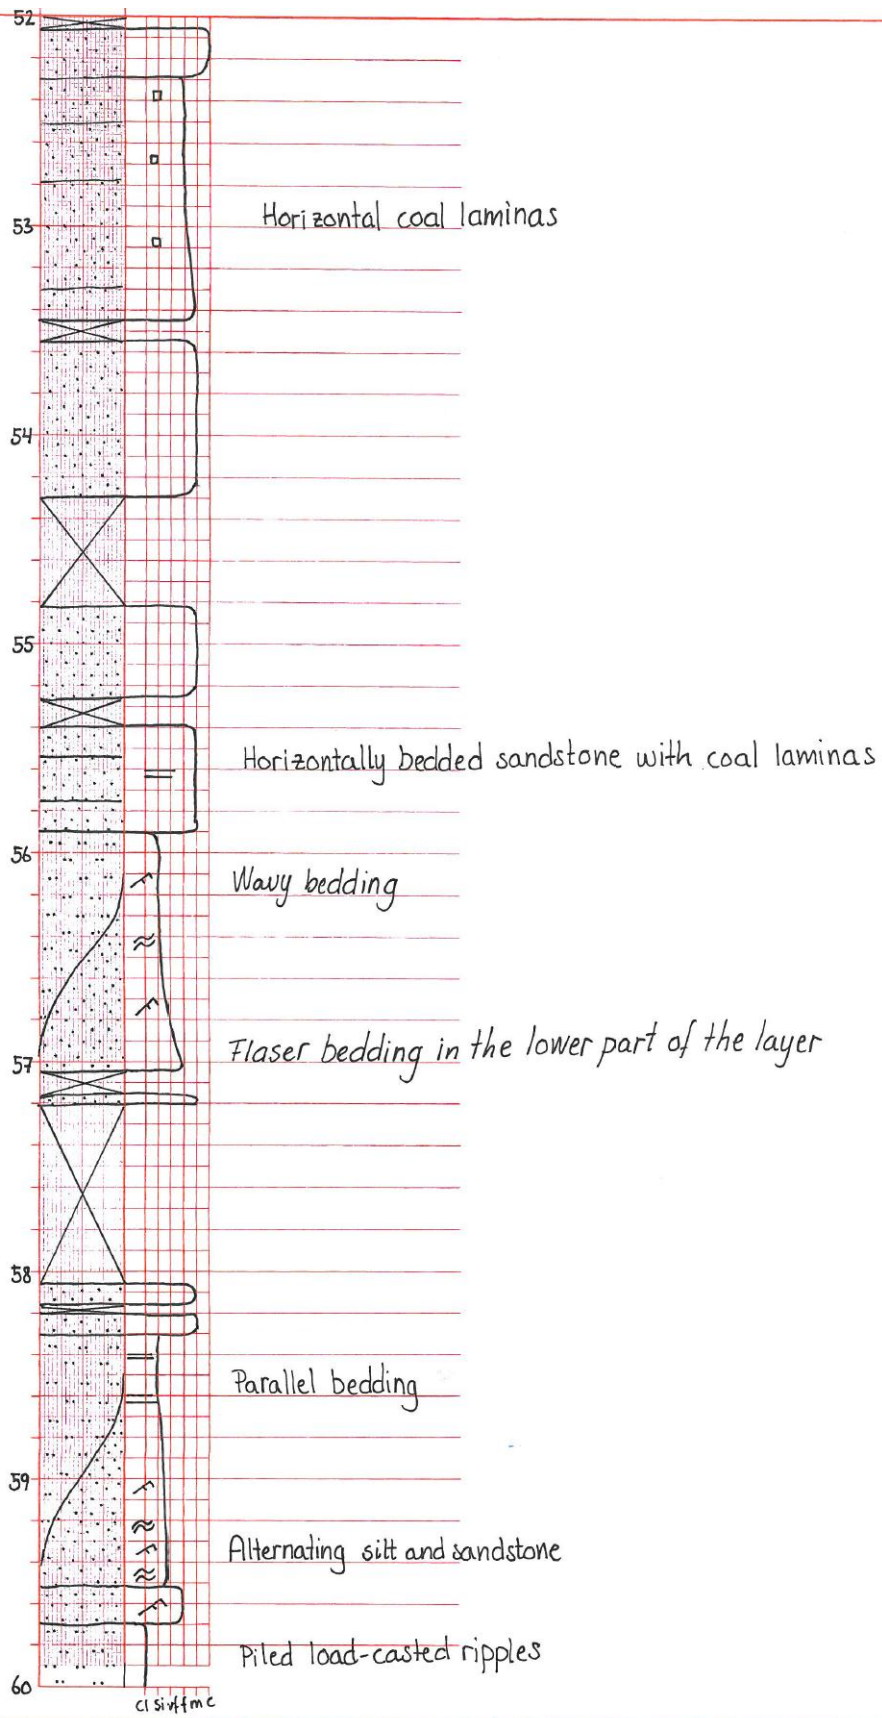 52
53
Horizontal coal laminas
54
55
Horizontally bedded sandstone with coal laminas
56
Wavy bedding
Flaser bedding in the lower part of the layer
57
58
Parallel bedding
59
Alternating silt and sandstone
Piled load-casted ripples
60
cl si vf f m c